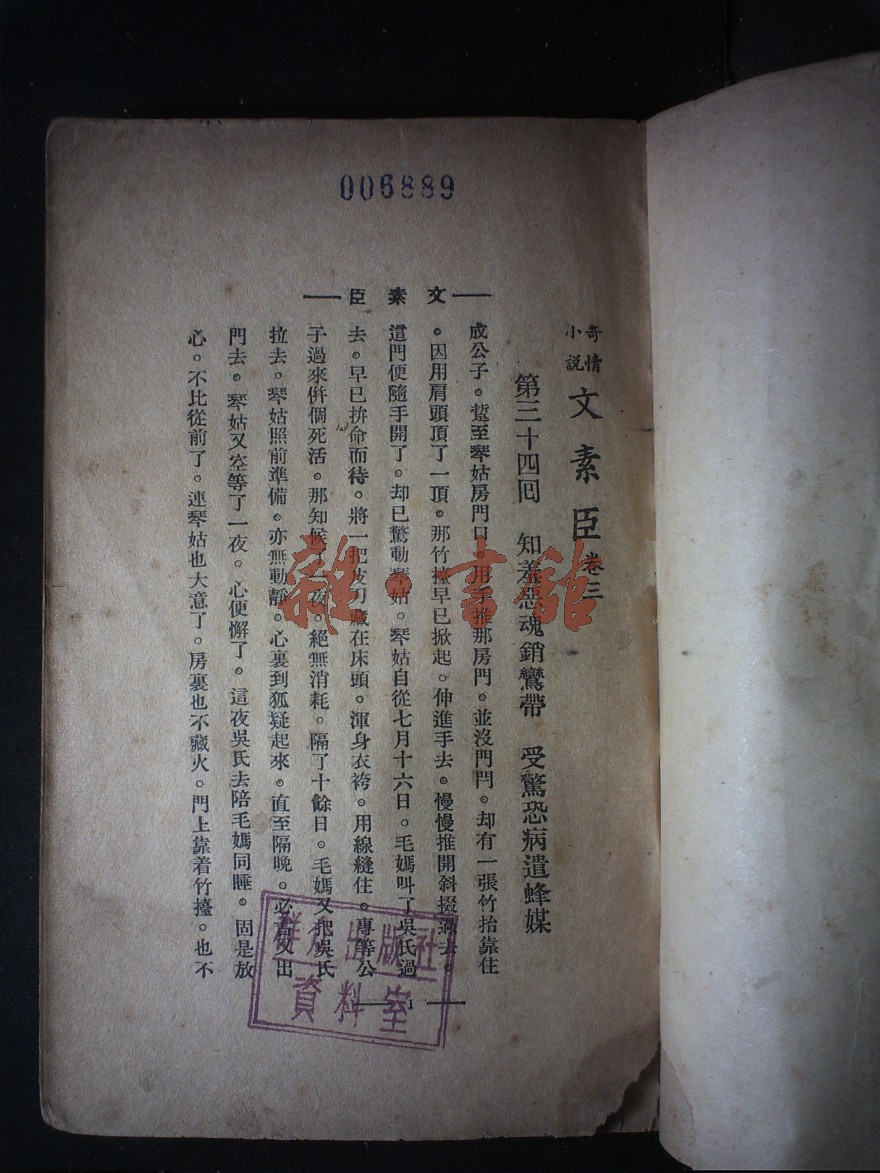 006889
文素臣
奇情小說 文素臣 卷三
第三十四囘 知羞惡魂銷鸞帶 受驚恐病遣蜂媒
成公子。踅至琴姑房門口。用手推那房門。並沒門閂。却有一張竹抬靠住
。因用肩頭頂了一頂。那竹擡早已掀起。伸進手去。慢慢推開斜掇過去。
這門便隨手開了。却已驚動琴姑。琴姑自從七月十六日。毛媽叫了吳氏過
去。早已拚命而待。將一把皮刀藏在床頭。渾身衣袴。用線縫住。專等公
子過來倂個死活。那知候了一夜。絕無消耗。隔了十餘日。毛媽又把吳氏
拉去。琴姑照前準備。亦無動靜。心裏到狐疑起來。直至隔晚。必吳又出
門去。琴姑又空等了一夜。心便懈了。這夜吳氏去陪毛媽同睡。固是放
心。不比從前了。連琴姑也大意了。房裏也不藏火。門上靠着竹擡。也不
一
群众出版社
資料室
雜·書舘